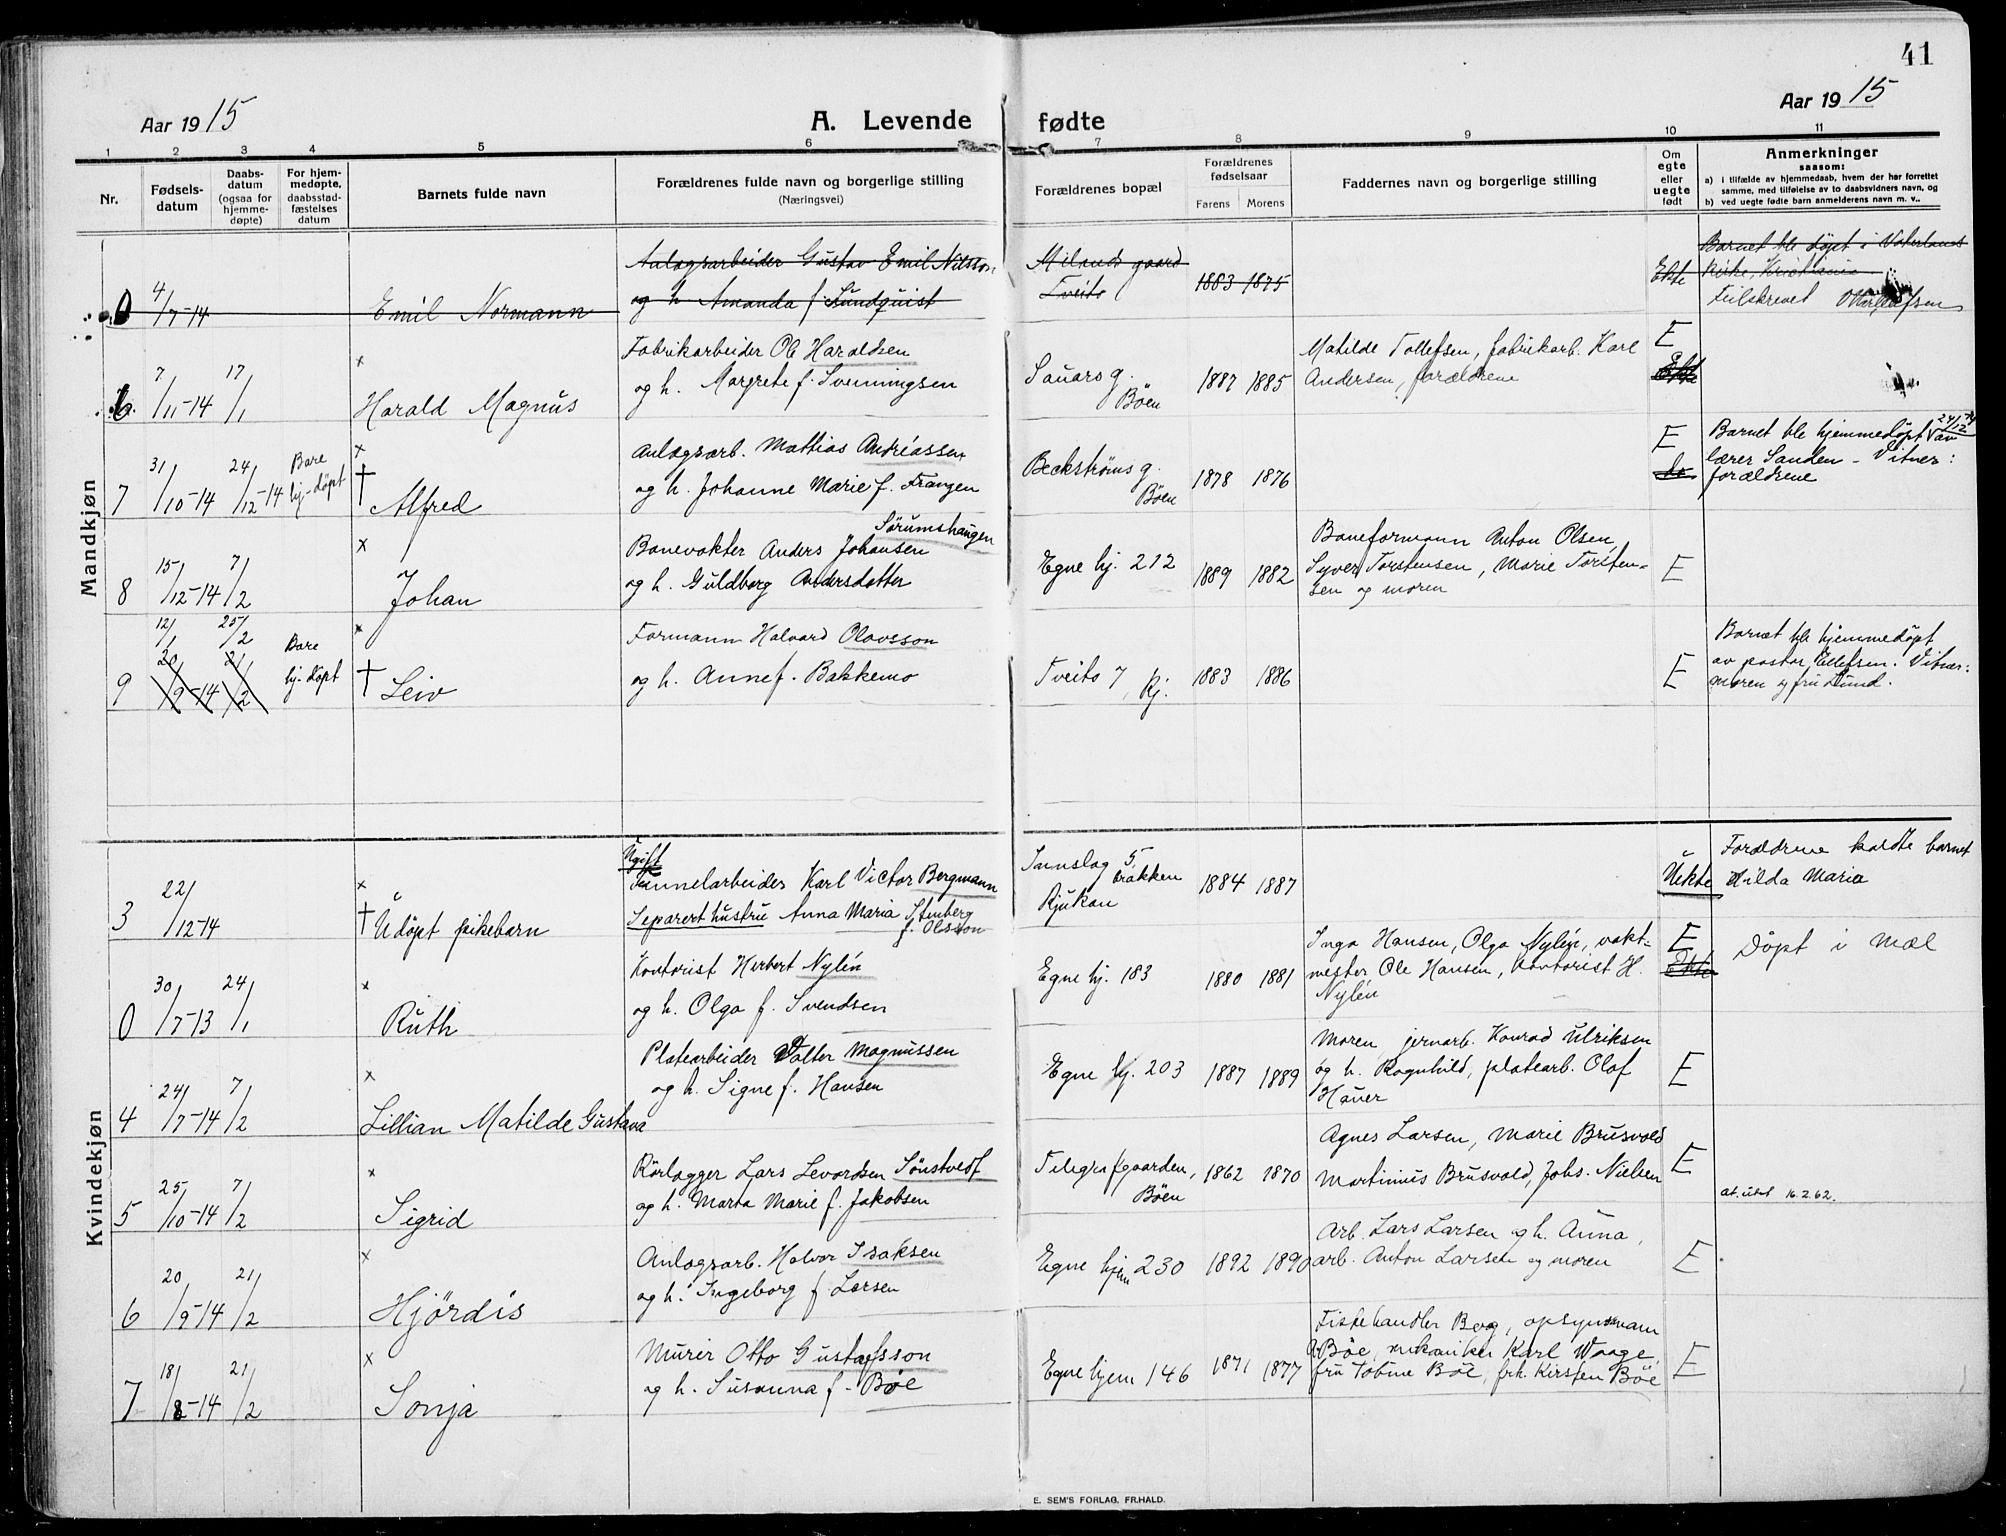 41
Aar 1915
A. Levende fødte
Aar 1915
1 2 3 4 5 6 7 8 9 10 11
Nr.
Fødsels-
datum
Daabs-
datum
(ogsaa for
hjemme-
døpte)
For hjem-
medøpte,
daabsstad-
fæstelses
datum
Barnets fulde navn
Forældrenes fulde navn og borgerlige stilling
(Næringsvei)
Forældrenes bopæl
Forældrenes
fødselsaar
Farens Morens
Faddernes navn og borgerlige stilling
Om
egte
eller
uegte
født
Anmerkninger
saasom:
a) i tilfælde av hjemmedaab, hvem der har forrettet
samme, med tilføielse av to daabsvidners navn, og
b) ved uegte fødte barn anmelderens navn m. v..
Mandkjøn
0 4/7-14 Emil Normann
Anlægsarbeider Gustav Emil Nilsson
og h. Amanda f. Lundquist
Milands gaard
Tveito
1883 1875
Ekte
Barnet ble døpt i Vaterlands
kirke, Kristiania
Feilskrevet
6 7/11-14 17/1 x Harald Magnus
Fabrikarbeider Ole Haraldsen
og h. Margrete f. Svenningsen
Sauars g.
Bøen
1887 1885
Matilde Tollefsen, fabrikarb. Karl
Andersen, forældrene
E
Ekte
7 31/10-14 24/12-14 Bare
hj-døpt
x † Alfred
Anlægsarb. Mathias Andréassen
og h. Johanne Marie f. Frangen
Beckstrøms g.
Bøen
1878 1876
E
do
Barnet ble hjemmedøpt 24/12-14 av
lærer Sanden - Vitner:
forældrene
8 15/12-14 7/2 x Johan
Sørumshaugen
Banevakter Anders Johansen
og h. Guldborg Andersdatter
Egne hj. 212
1889 1882
Baneformann Anton Olsen,
Syver Torstensen, Marie Torsten-
sen og moren
E
9 12/1 25/2
20/9-14 21/2
Bare
hj-døpt
x † Leiv
Formann Halvard Olavsson
og h. Anne f. Bakkemo
Tveito 7, Rj.
1883 1886
E
Barnet ble hjemmedøpt
av pastor Ellefsen. Vitner:
moren og fru Lund.
Kvindekjøn
3 22/12-14 x † Udøpt pikebarn
Ugift
Tunnelarbeider Karl Victor Bergmann
Separert hustru Anna Maria Stenberg
f. Olsson
Innslag 5,
brakken
Rjukan
1884 1887
Uekte
Forældrene kaldte barnet
Hilda Maria
0 30/7-13 24/1 x Ruth
Kontorist Herbert Nylén
og h. Olga f. Svendsen
Egne hj. 183
1880 1881
Inga Hansen, Olga Nylén, vakt-
mester Ole Hansen, kontorist H.
Nylén
E
Ekte
Døpt i Mæl
4 24/7-14 7/2 x Lillian Matilde Gustava
Platearbeider Valter Magnussen
og h. Signe f. Hansen
Egne hj. 203
1887 1889
Moren, jernarb. Konrad Ulriksen
og h. Ragnhild, platearb. Olaf
Hauer
E
5 25/10-14 7/2 x Sigrid
Rörlægger Lars Levordsen Sönstvedt
og h. Marta Marie f. Jakobsen
Telegrafgaarden,
Bøen
1862 1870
Agnes Larsen, Marie Brusvold
Martinius Brusvold, Johs. Nielsen
E
at. utst 16.2.62.
6 20/9-14 21/2 x Hjördis
Anlægsarb. Halvor Isaksen
og h. Ingeborg f. Larsen
Egne hjem 230
1892 1890
Arb. Lars Larsen og h. Anna,
arb. Anton Larsen og moren
E
7 18/8-14 21/2 x Sonja
Murer Otto Gustafsson
og h. Susanna f. Bøe
Egne hjem 146
1871 1877
Fiskehandler Berg, opsynsmann
Bøe, mekaniker Karl Waage,
fru Tobine Bøe, frk. Kirsten Bøe
E
E. SEM'S FORLAG, FR.HALD.